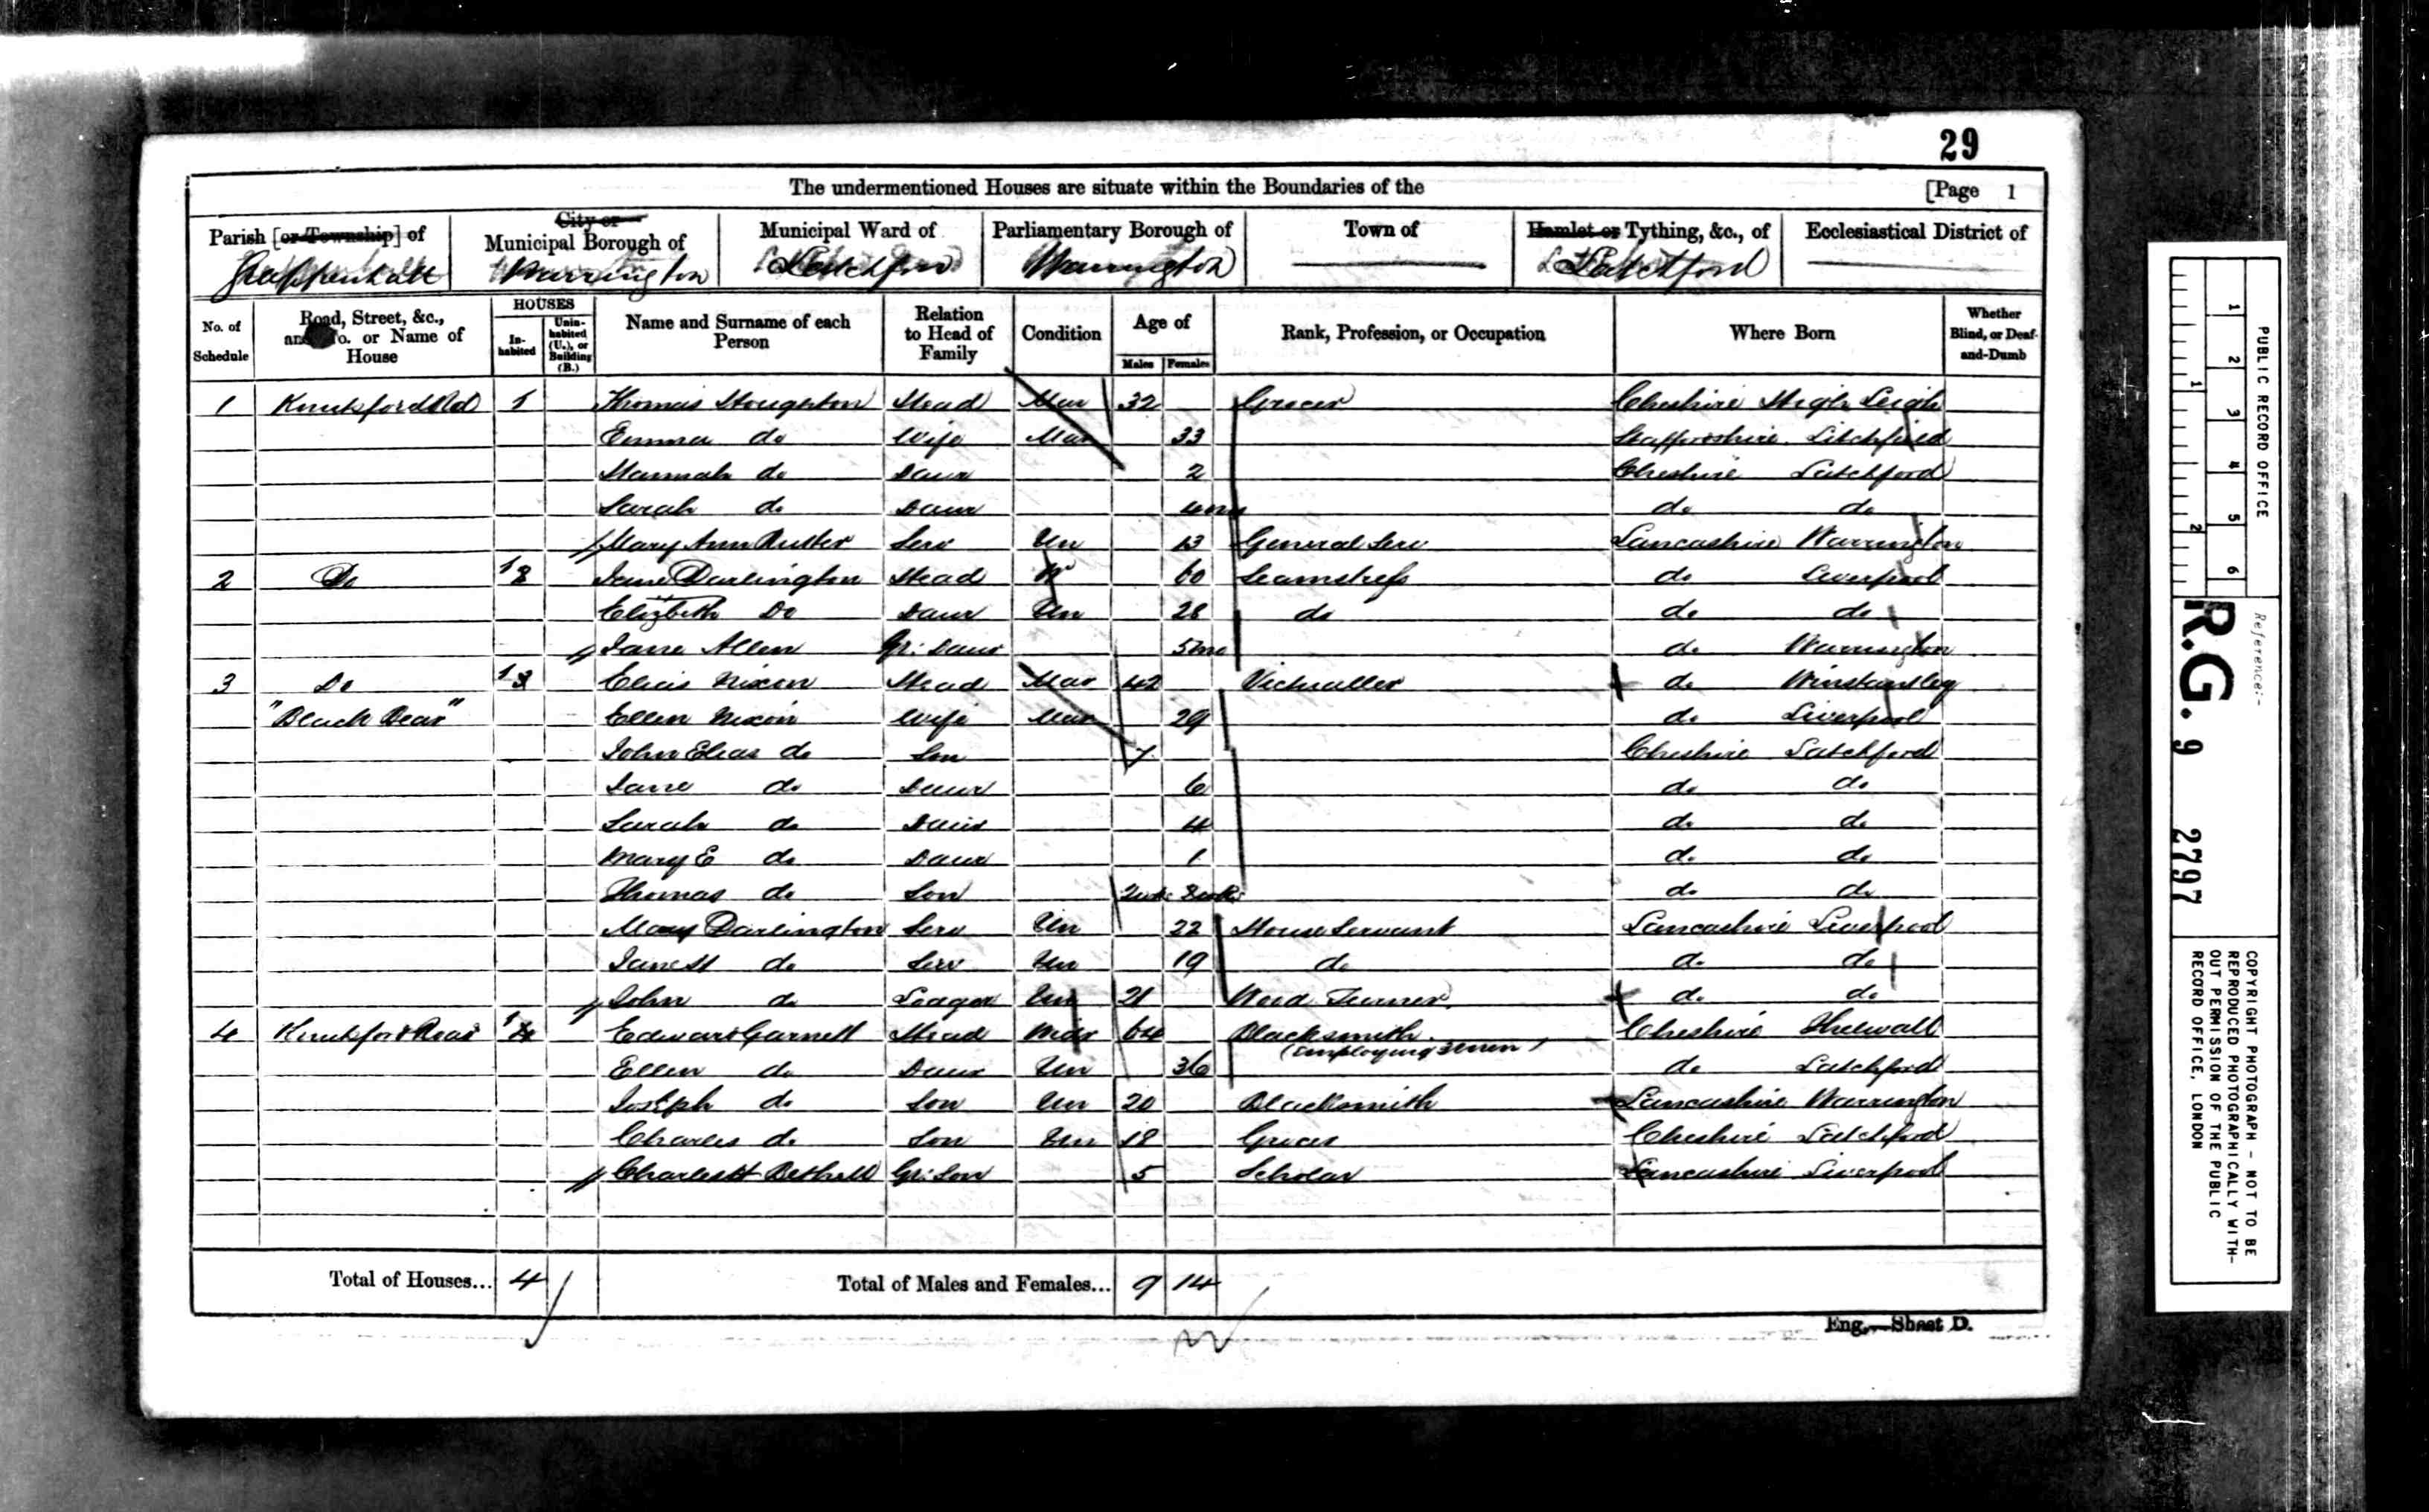 29
The undermentioned Houses are situate within the Boundaries of the [Page 1
Parish [or Township] of City or Municipal Borough of Municipal Ward of Parliamentary Borough of Town of Hamlet or Tything, &c., of Ecclesiastical District of
Grappenhall Warrington Latchford Warrington Latchford
No. of Schedule Road, Street, &c., and No. or Name of House HOUSES Inhabited Uninhabited (U.), or Building (B.) Name and Surname of each Person Relation to Head of Family Condition Age of Males Females Rank, Profession, or Occupation Where Born Whether Blind, or Deaf-and-Dumb
1 Knutsford Rd 1 Thomas Houghton Head Mar 32 Grocer Cheshire High Leigh
Emma do Wife Mar 33 Staffordshire Litchfield
Hannah do Daur 2 Cheshire Latchford
Sarah do Daur 4mo do do
Mary Ann Rutter Serv Un 13 General Serv Lancashire Warrington
2 Do 1 Jane Darlington Head W 60 Seamstress do Liverpool
Elizbeth Do Daur Un 28 do do do
Jane Allen Gr: Daur 5mo do Warrington
3 Do 1 Elias Nixon Head Mar 42 Victualler do Winstanley
"Black Bear" Ellen Nixon Wife Mar 29 do Liverpool
John Elias do Son 7 Cheshire Latchford
Jane do Daur 6 do do
Sarah do Daur 4 do do
Mary E do Daur 1 do do
Thomas do Son 2wks do do
Mary Darlington Serv Un 22 House Servant Lancashire Liverpool
Jane H do Serv Un 19 do do do
John do Lodger Un 21 Wood Turner do do
4 Knutsford Road 1 Edward Garnett Head Mar 64 Blacksmith Cheshire Thelwall
(Employing 3 men)
Ellen do Daur Un 36 do Latchford
Joseph do Son Un 20 Blacksmith Lancashire Warrington
Charles do Son Un 18 Grocer Cheshire Latchford
Charles H Bethell Gr: Son 5 Scholar Lancashire Liverpool
Total of Houses... 4 Total of Males and Females... 9 14
Eng.—Sheet D.
PUBLIC RECORD OFFICE
1 2 3 4 5 6
1 2
Reference:-
R.G. 9 2797
COPYRIGHT PHOTOGRAPH – NOT TO BE
REPRODUCED PHOTOGRAPHICALLY WITH-
OUT PERMISSION OF THE PUBLIC
RECORD OFFICE, LONDON